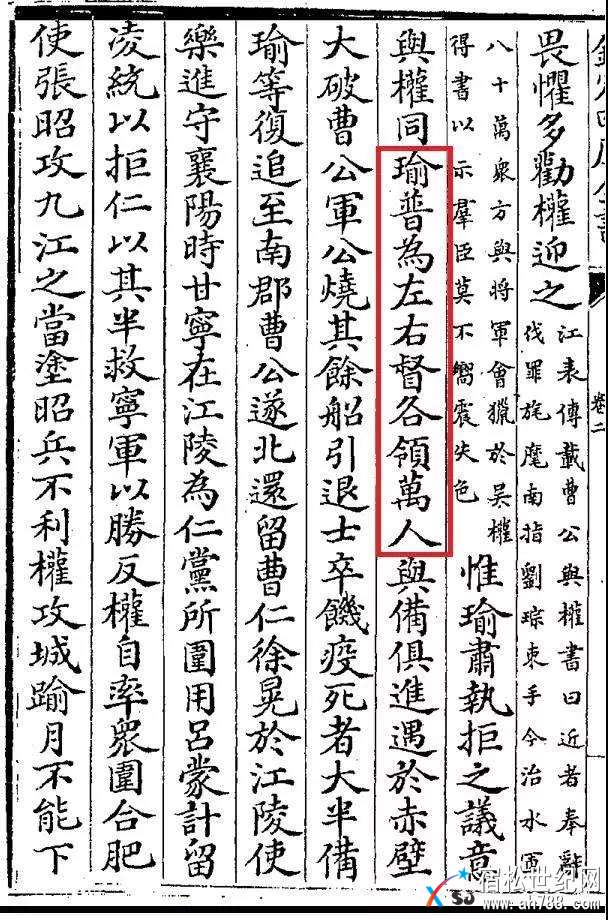 卷二
畏懼多勸權迎之
江表傳載曹公與權書曰近者奉辭
伐罪旄麾南指劉琮束手今治水軍
八十萬衆方與將軍會獵於吳權
得書以示羣臣莫不嚮震失色
惟瑜肅執拒之議意
與權同瑜普為左右督各領萬人與備俱進遇於赤壁
大破曹公軍公燒其餘船引退士卒饑疫死者大半備
瑜等復追至南郡曹公遂北還留曹仁徐晃於江陵使
樂進守襄陽時甘寧在江陵為仁黨所圍用呂蒙計留
凌統以拒仁以其半救寧軍以勝反權自率衆圍合肥
使張昭攻九江之當塗昭兵不利權攻城踰月不能下
SJ
宿松世纪网
www.ah788.com